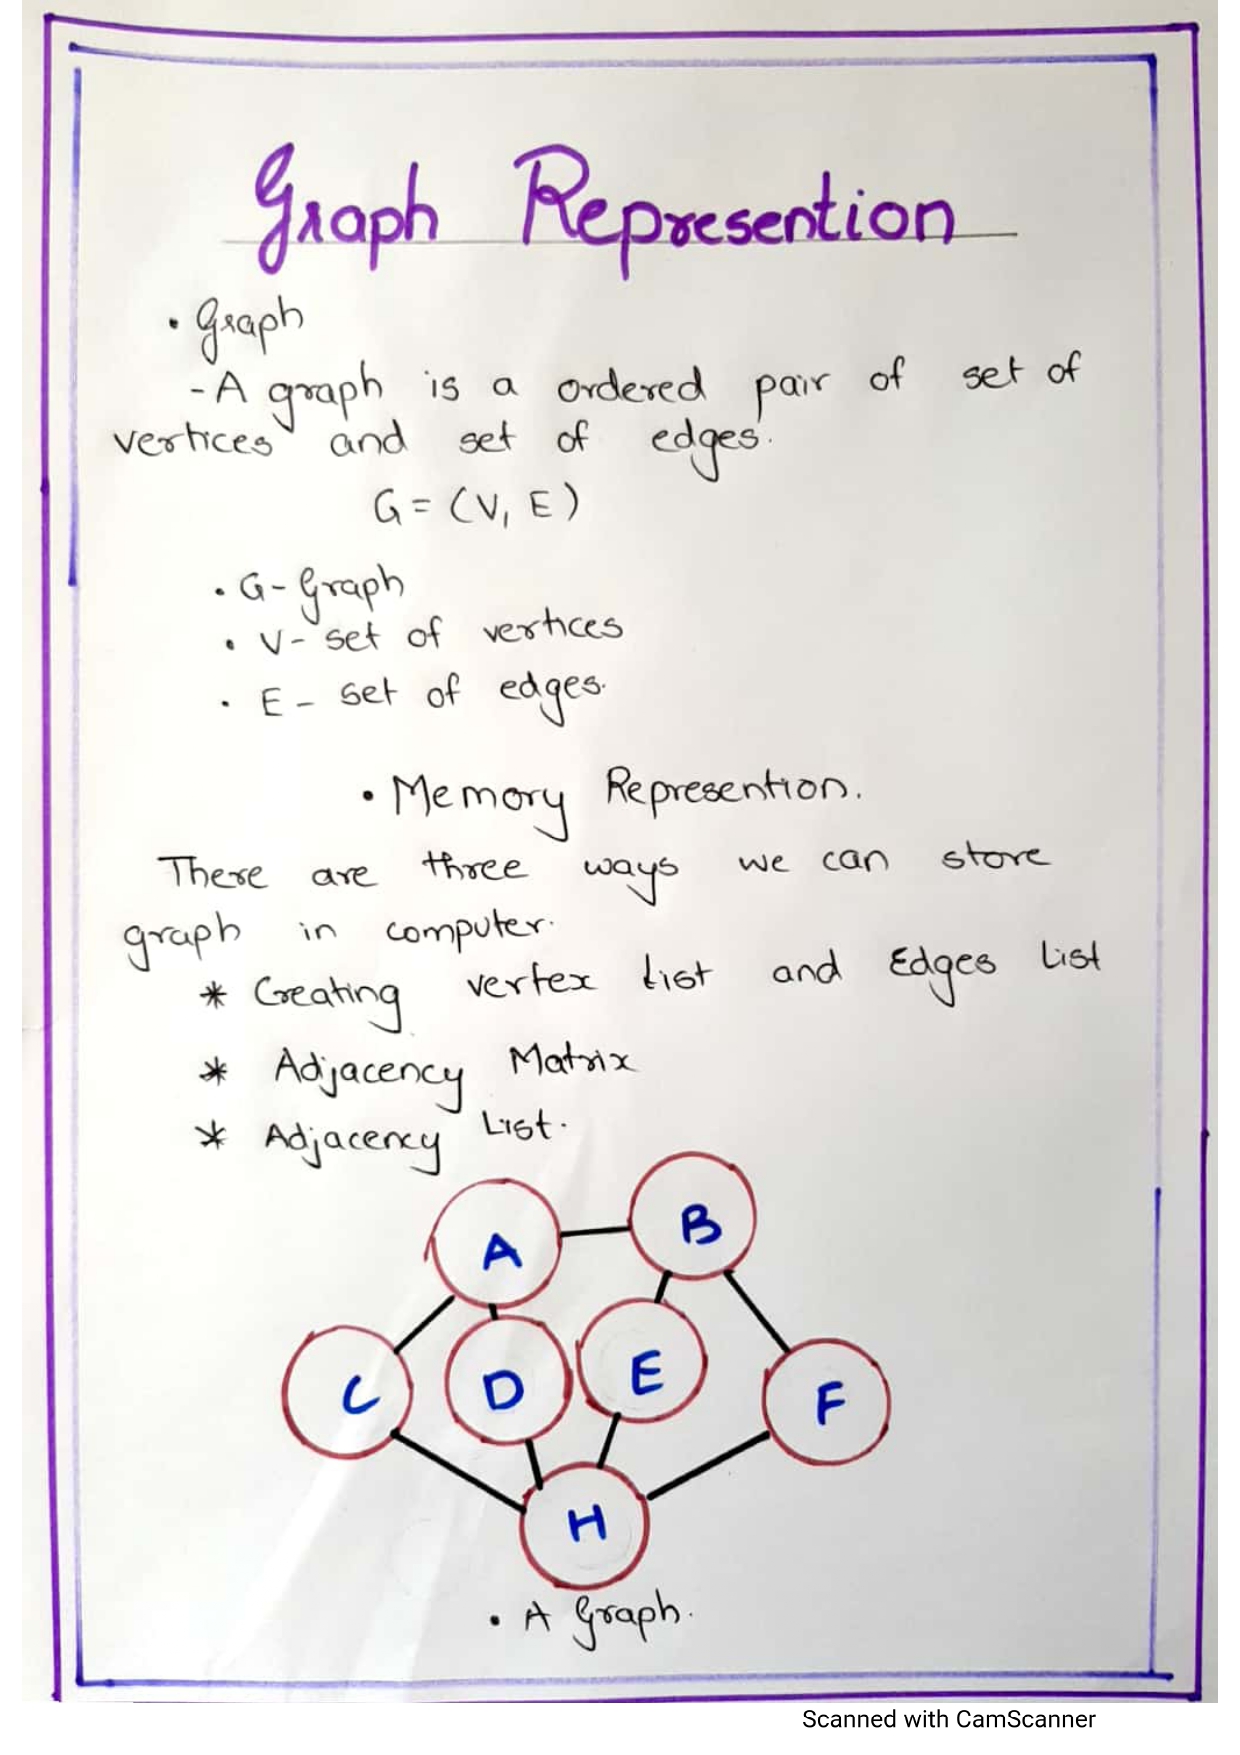 Graph Represention
• Graph
- A graph is a ordered pair of set of
vertices and set of edges.
G = (V, E)
• G - Graph
• V - set of vertices
• E - set of edges.
• Memory Represention.
There are three ways we can store
graph in computer.
* Creating vertex list and Edges List
* Adjacency Matrix
* Adjacency List.
A B
C D E F
H
• A Graph.
Scanned with CamScanner